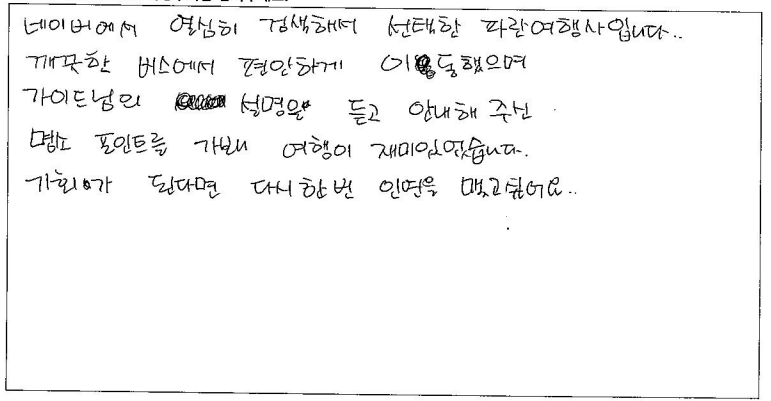 네이버에서 열심히 검색해서 선택한 파란여행사입니다..
깨끗한 버스에서 편안하게 이동했으며
가이드님의 설명을 듣고 안내해 주신
명소 포인트를 가보니 여행이 재미있었습니다.
기회가 된다면 다시한번 인연을 맺고싶어요..